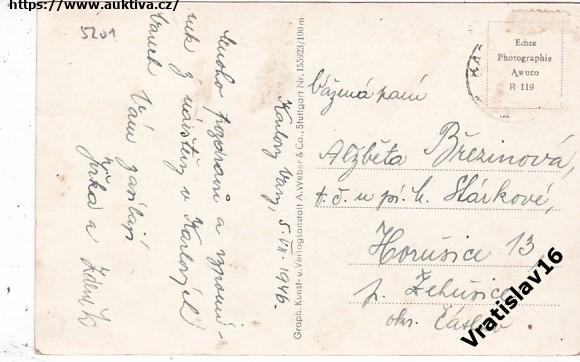 https://www.auktiva.cz/
5201
Mnoho pozdravů a vzpomí-
nek z návštěvy v Karlových
Varech Vám zasílají
Jirka a Zdeněk
Karlovy Vary, 5.VII.1946.
Graph. Kunst- u. Verlagsanstalt A. Weber & Co., Stuttgart Nr. 155923/100 m
Echte
Photographie
Awuco
R 119
Vážená paní
Alžběta Březinová,
t. č. u pí. h. Stárkové,
Horušice 13
p. Žehušice
okr. Čáslav
Vratislav16